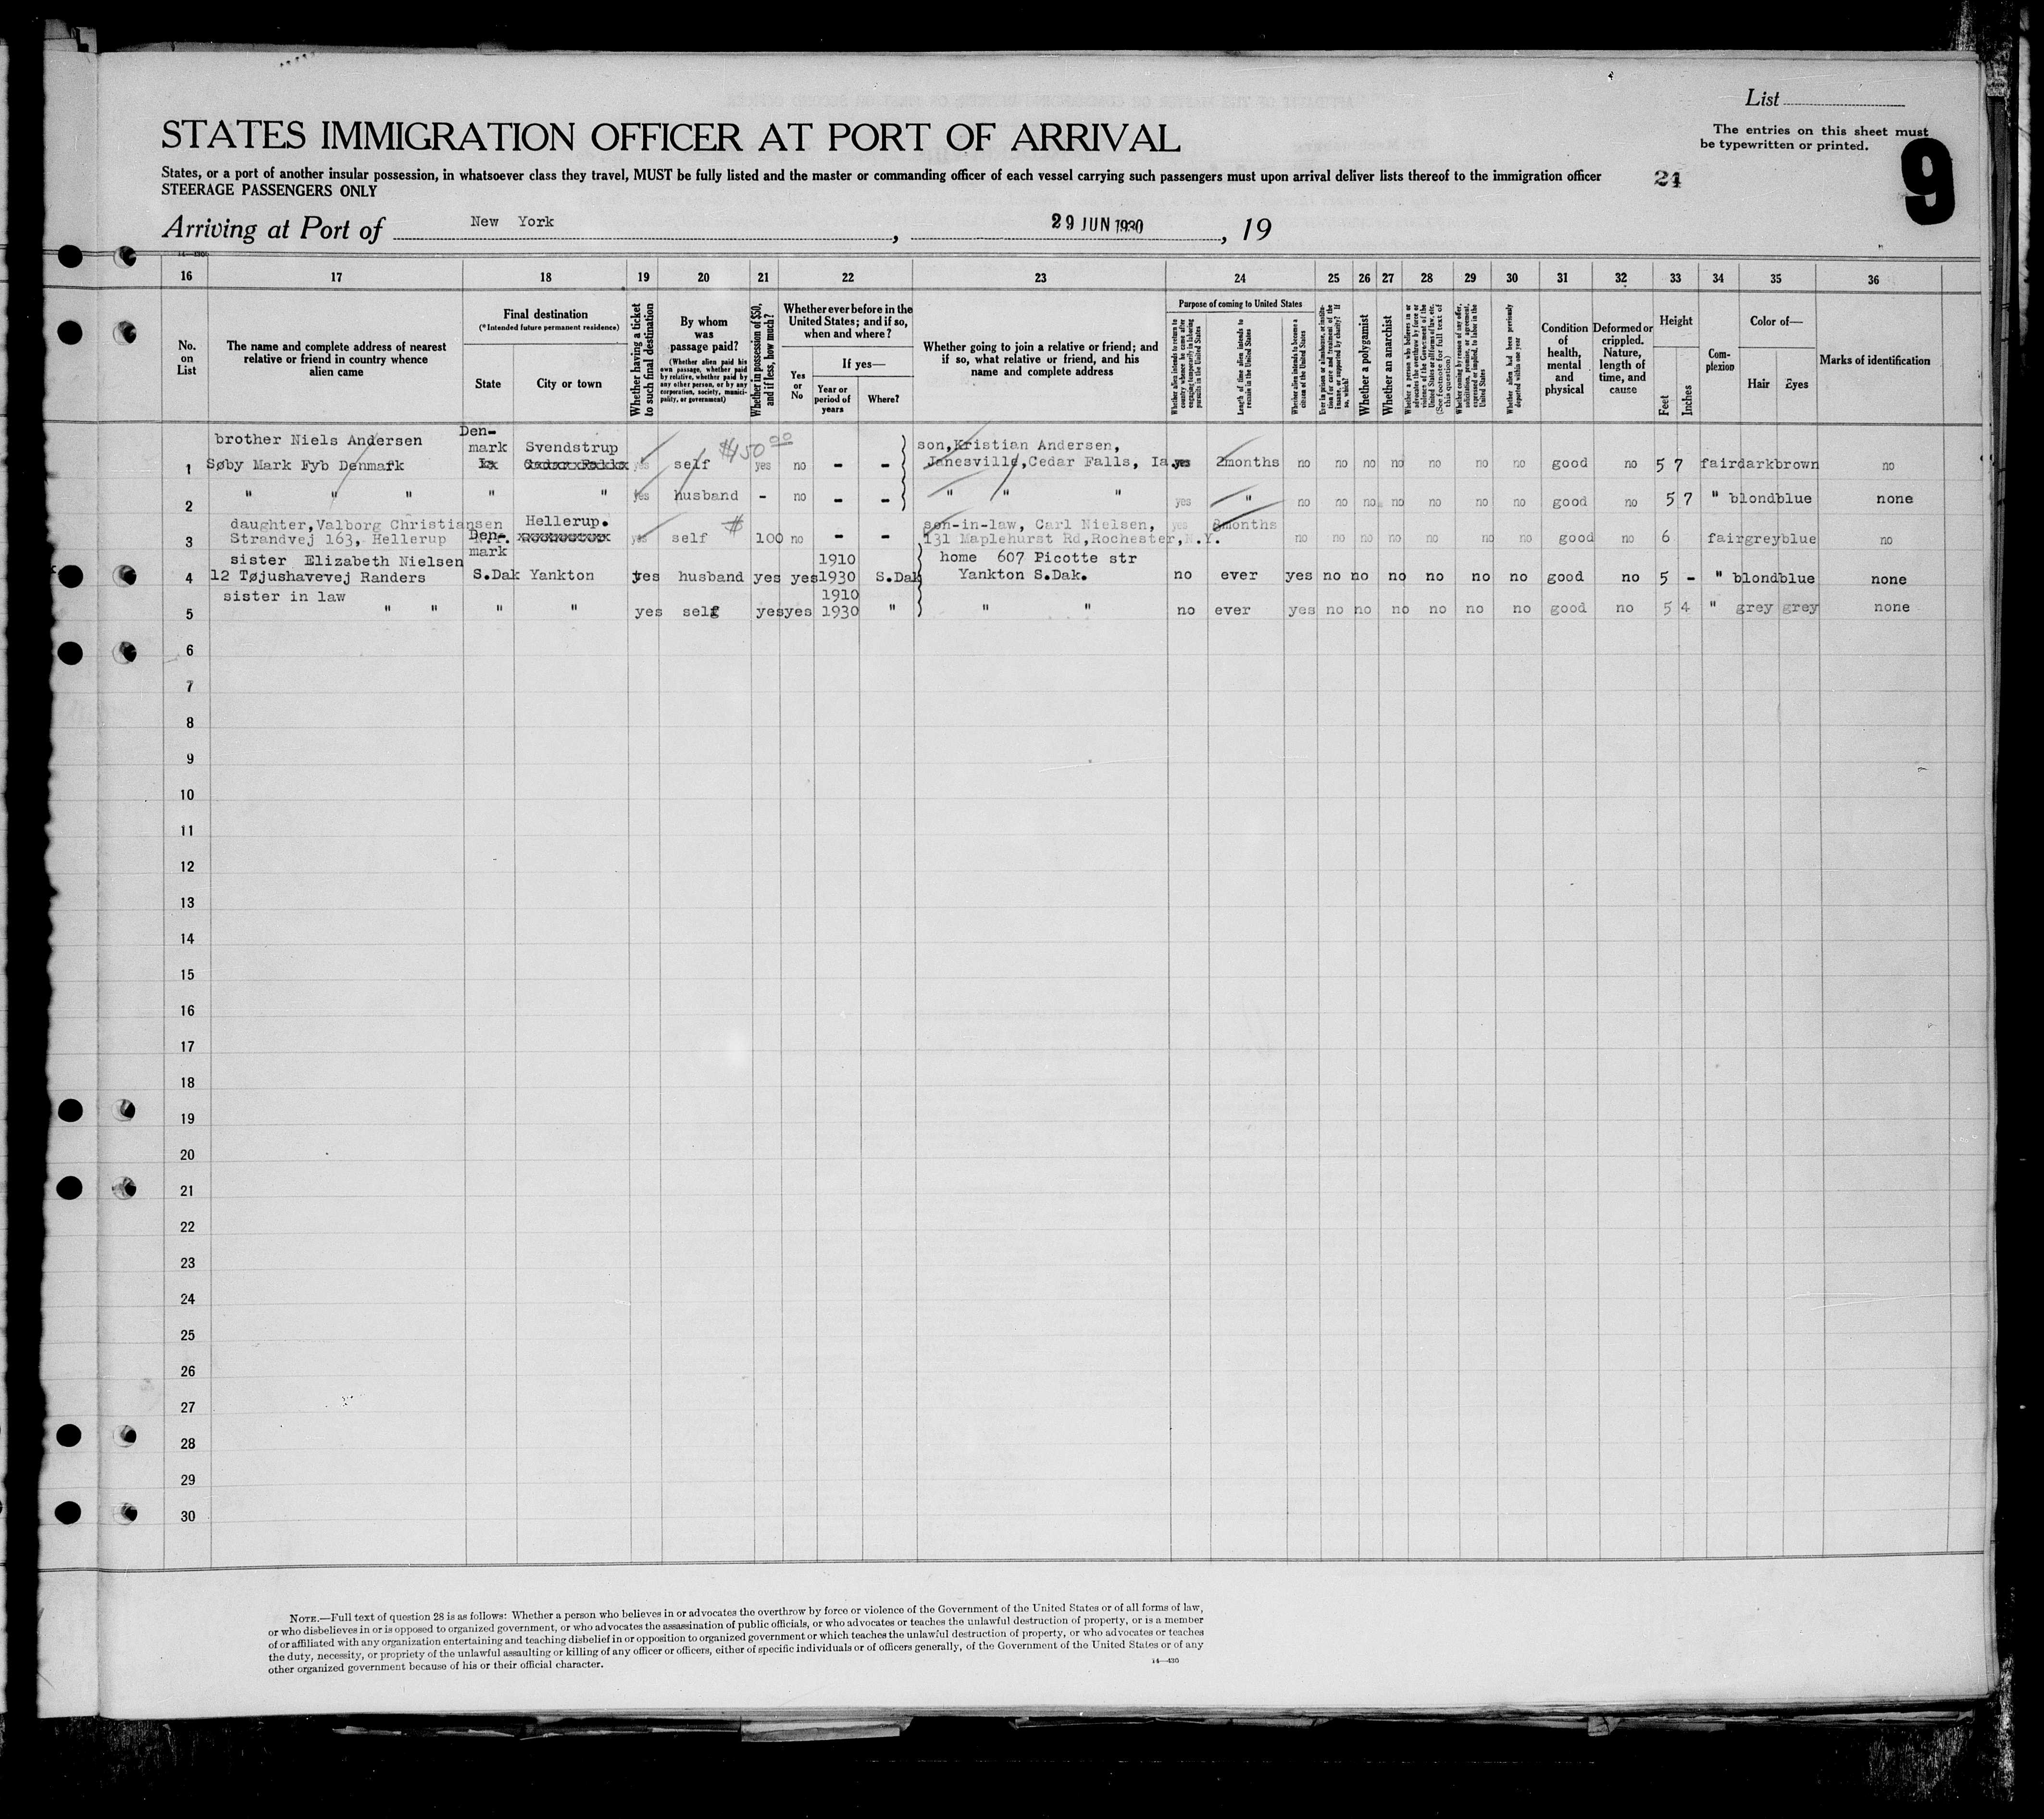 List
The entries on this sheet must
be typewritten or printed.
9
STATES IMMIGRATION OFFICER AT PORT OF ARRIVAL
States, or a port of another insular possession, in whatsoever class they travel, MUST be fully listed and the master or commanding officer of each vessel carrying such passengers must upon arrival deliver lists thereof to the immigration officer
STEERAGE PASSENGERS ONLY
Arriving at Port of New York, 29 JUN 1930, 19
16 17 18 19 20 21 22 23 24 25 26 27 28 29 30 31 32 33 34 35 36
No. on List
The name and complete address of nearest relative or friend in country whence alien came
Final destination
(*Intended future permanent residence)
State City or town
Whether having a ticket to such final destination
By whom was passage paid?
(Whether alien paid his own passage, whether paid by relative, whether paid by any other person, or by any corporation, society, municipality, or government)
Whether in possession of $50, and if less, how much?
Whether ever before in the United States; and if so, when and where?
Yes or No
If yes—
Year or period of years
Where?
Whether going to join a relative or friend; and if so, what relative or friend, and his name and complete address
Purpose of coming to United States
Whether alien intends to return to country whence he came after engaging temporarily in laboring pursuits in the United States
Length of time alien intends to remain in the United States
Whether alien intends to become a citizen of the United States
Ever in prison or almshouse, or institution for care and treatment of the insane, or supported by charity? If so, which?
Whether a polygamist
Whether an anarchist
Whether a person who believes in or advocates the overthrow by force or violence of the Government of the United States or all forms of law, etc. (See footnote for full text of this question)
Whether coming by reason of any offer, solicitation, promise, or agreement, expressed or implied, to labor in the United States
Whether alien had been previously deported within one year
Condition of health, mental and physical
Deformed or crippled. Nature, length of time, and cause
Height
Feet Inches
Complexion
Color of—
Hair Eyes
Marks of identification
brother Niels Andersen Den- son, Kristian Andersen,
mark Svendstrup $450 00
1 Søby Mark Fyb Denmark yes self yes no - - Janesville, Cedar Falls, Ia. yes 2months no no no no no no no good no 5 7 fair dark brown no
2 " " " " " yes husband - no - - " " " yes " no no no no no no no good no 5 7 " blond blue none
daughter, Valborg Christiansen Hellerup. $ son-in-law, Carl Nielsen, yes months
3 Strandvej 163, Hellerup Den- yes self 100 no - - 131 Maplehurst Rd, Rochester, N.Y. no no no no no no no good no 6 fair grey blue no
sister Elizabeth Nielsen mark 1910 home 607 Picotte str
4 12 Tøjushavevej Randers S.Dak Yankton yes husband yes yes 1930 S.Dak Yankton S.Dak. no ever yes no no no no no no good no 5 - " blond blue none
sister in law 1910
5 " " " " yes self yes yes 1930 " " " no ever yes no no no no no no good no 5 4 " grey grey none
6
7
8
9
10
11
12
13
14
15
16
17
18
19
20
21
22
23
24
25
26
27
28
29
30
NOTE.—Full text of question 28 is as follows: Whether a person who believes in or advocates the overthrow by force or violence of the Government of the United States or of all forms of law,
or who disbelieves in or is opposed to organized government, or who advocates the assassination of public officials, or who advocates or teaches the unlawful destruction of property, or is a member
of or affiliated with any organization entertaining and teaching disbelief in or opposition to organized government or which teaches the unlawful destruction of property, or who advocates or teaches
the duty, necessity, or propriety of the unlawful assaulting or killing of any officer or officers, either of specific individuals or of officers generally, of the Government of the United States or of any
other organized government because of his or their official character.
14—430